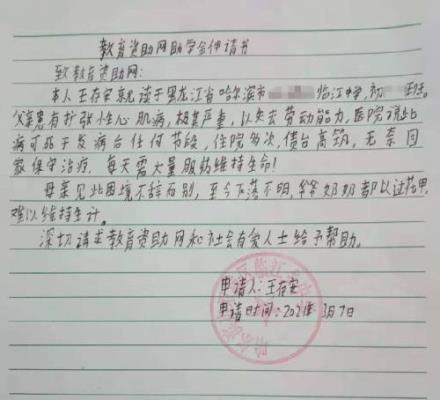 教育资助网助学金申请书
致教育资助网:
本人王存安就读于黑龙江省哈尔滨市 临江中学,初 班.
父亲患有扩张性心肌病,极其严重,以失去劳动能力,医院说此
病可死于发病后任何节段,住院多次,债台高筑,无奈回
家保守治疗.每天需大量服药维持生命!
母亲见此困境不辞而别,至今下落不明,爷爷奶奶都以过花甲,
难以维持生计。
深切请求教育资助网和社会有爱人士给予帮助。
申请人:王存安
申请时间:2021年3月7日